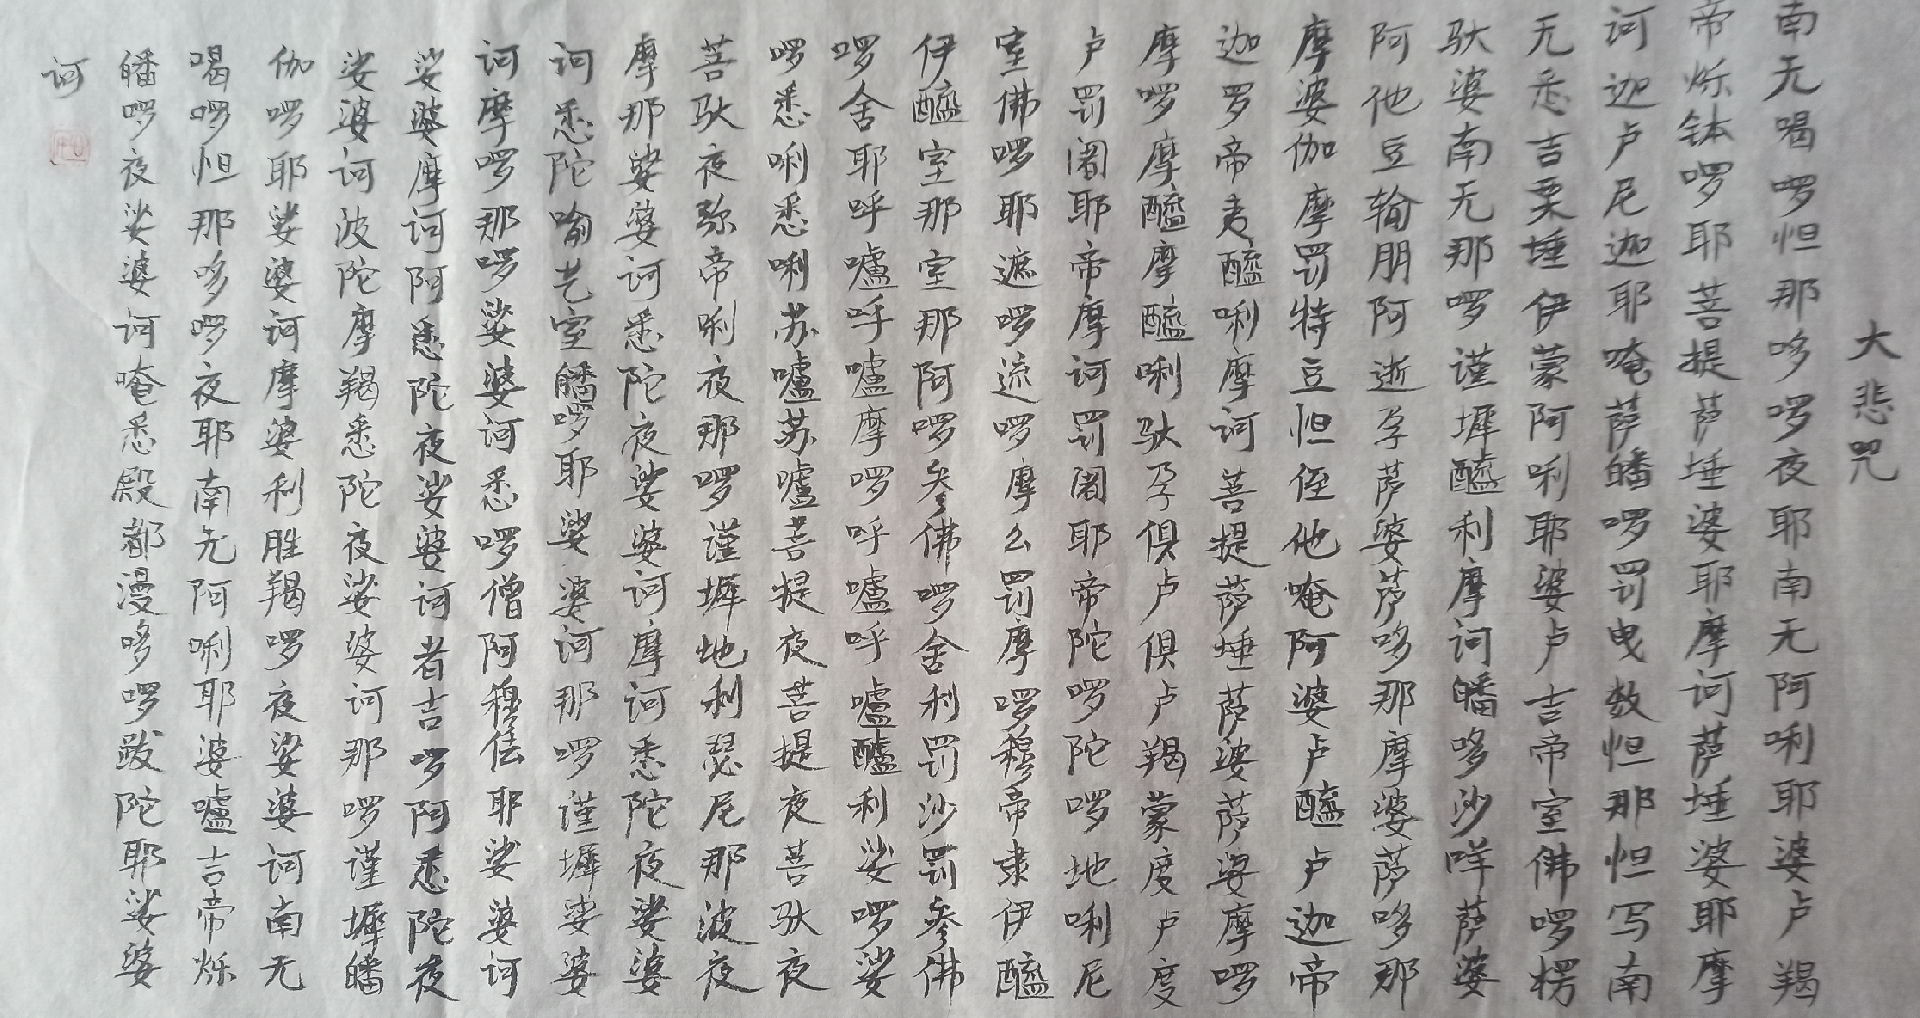 大悲咒
南无喝啰怛那哆啰夜耶南无阿唎耶婆卢羯
帝烁钵啰耶菩提萨埵婆耶摩诃萨埵婆耶摩
诃迦卢尼迦耶唵萨皤啰罚曳数怛那怛写南
无悉吉栗埵伊蒙阿唎耶婆卢吉帝室佛啰楞
驮婆南无那啰谨墀醯利摩诃皤哆沙咩萨婆
阿他豆输朋阿逝孕萨婆萨哆那摩婆萨哆那
摩婆伽摩罚特豆怛侄他唵阿婆卢醯卢迦帝
迦罗帝夷醯唎摩诃菩提萨埵萨婆萨婆摩啰
摩啰摩醯摩醯唎驮孕俱卢俱卢羯蒙度卢度
卢罚阇耶帝摩诃罚阇耶帝陀啰陀啰地唎尼
室佛啰耶遮啰遮啰摩么罚摩啰穆帝隶伊醯
伊醯室那室那阿啰参佛啰舍利罚沙罚参佛
啰舍耶呼嚧呼嚧摩啰呼嚧呼嚧醯利娑啰娑
啰悉唎悉唎苏嚧苏嚧菩提夜菩提夜菩驮夜
菩驮夜弥帝唎夜那啰谨墀地利瑟尼那波夜
摩那娑婆诃悉陀夜娑婆诃摩诃悉陀夜娑婆
诃悉陀喻艺室皤啰耶娑婆诃那啰谨墀娑婆
诃摩啰那啰娑婆诃悉啰僧阿穆佉耶娑婆诃
娑婆摩诃阿悉陀夜娑婆诃者吉啰阿悉陀夜
娑婆诃波陀摩羯悉陀夜娑婆诃那啰谨墀皤
伽啰耶娑婆诃摩婆利胜羯啰夜娑婆诃南无
喝啰怛那哆啰夜耶南无阿唎耶婆嚧吉帝烁
皤啰夜娑婆诃唵悉殿都漫哆啰跋陀耶娑婆
诃